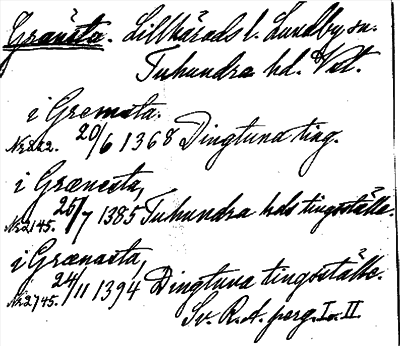 Gränsta. Lillhärads l. Lundby sn.
Tuhundra hd. Vstl.
i Gremsta.
Nr 822. 20/6 1368 Dingtuna ting.
i Grænesta,
Nr 2145. 25/7 1385 Tuhundra hds tingsställe.
i Grænasta,
Nr 2745. 24/11 1394 Dingtuna tingsställe.
Sv. R. A. perg. I o. II